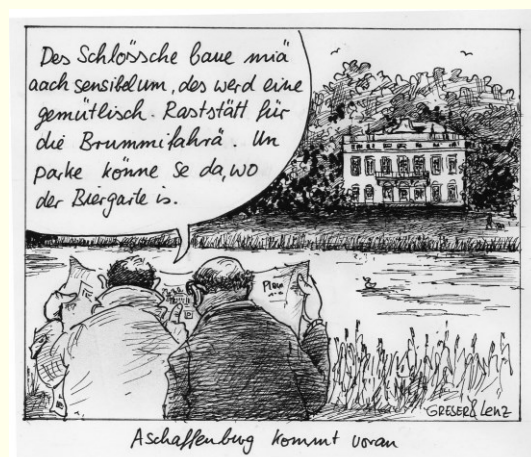 Des Schlössche baue miä
aach sensibel um, des werd eine
gemütlisch. Raststätt für
die Brummifahrä. Un
parke könne Se da, wo
der Biergarte is.
Plan
GRESER & Lenz
Aschaffenburg kommt voran